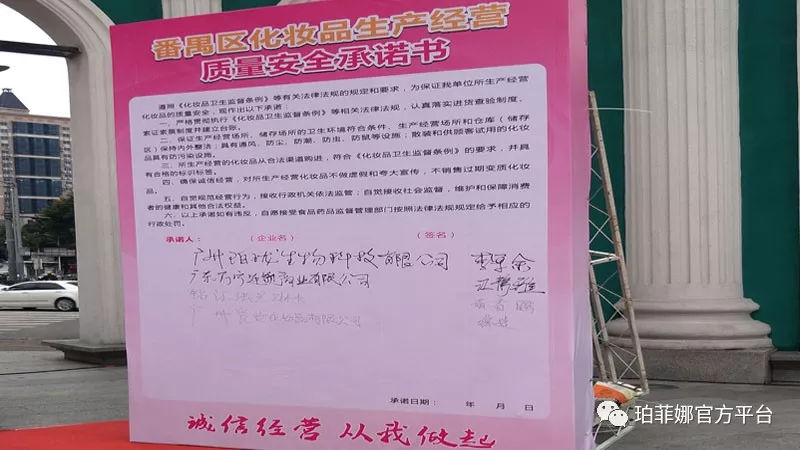 番禺区化妆品生产经营
质量安全承诺书
遵照《化妆品卫生监督条例》等有关法律法规的规定和要求，为保证我单位所生产经营
化妆品的质量安全，现作出以下承诺：
一、严格贯彻执行《化妆品卫生监督条例》等相关法律法规，认真落实进货查验制度、
索证索票制度并建立台账。
二、保证生产经营场所、储存场所的卫生环境符合条件、生产经营场所和仓库（储存
区）保持内外整洁；具有通风、防尘、防潮、防虫、防鼠等设施；散装和供顾客试用的化妆
品具有防污染设施。
三、所生产经营的化妆品从合法渠道购进，符合《化妆品卫生监督条例》的要求，并具
有合格的标识标签。
四、确保诚信经营，对所生产经营化妆品不做虚假和夸大宣传，不销售过期变质化妆
品。
五、自觉规范经营行为，接收行政机关依法监管；自觉接收社会监督，维护和保障消费
者的健康和其他合法权益。
六、以上承诺如有违反，自愿接受食品药品监督管理部门按照法律法规规定给予相应的
行政处罚。
承诺人： （企业名） （签名）
广州 生物科技有限公司
广东 有限公司
广州 化妆品有限公司
承诺日期： 年 月 日
诚信经营 从我做起
珀菲娜官方平台